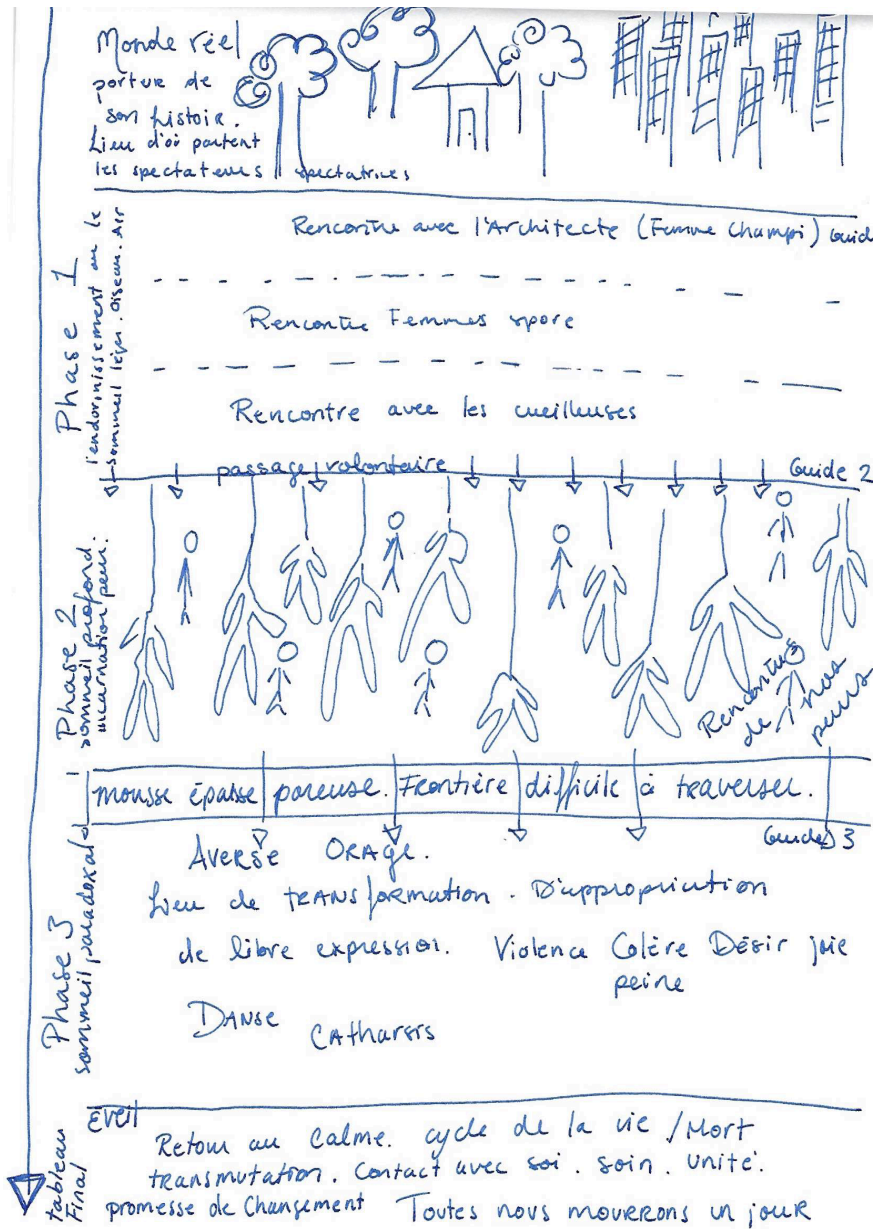 Monde réel
porteur de
son histoire.
Lieu d'où partent
les spectateurs spectatrices
Phase 1
l'endormissement ou le
sommeil léger. oiseau. Air
Rencontre avec l'Architecte (Femme Champi) Guide
Rencontre Femmes spore
Rencontre avec les cueilleuses
passage volontaire
Guide 2
Phase 2
sommeil profond.
incarnation peur.
Rencontres
de nos
peurs
mousse épaisse poreuse. Frontière difficile à traverser.
Guide 3
Phase 3
sommeil paradoxal
AVERSE ORAGE.
Lieu de TRANSformation. D'appropriation
de libre expression. Violence Colère Désir joie
peine
DANSE
CAtharsis
tableau
Final
EVEIL
Retour au Calme. cycle de la vie / Mort
transmutation. Contact avec soi. soin. Unité.
promesse de Changement Toutes nous mourrons un jour